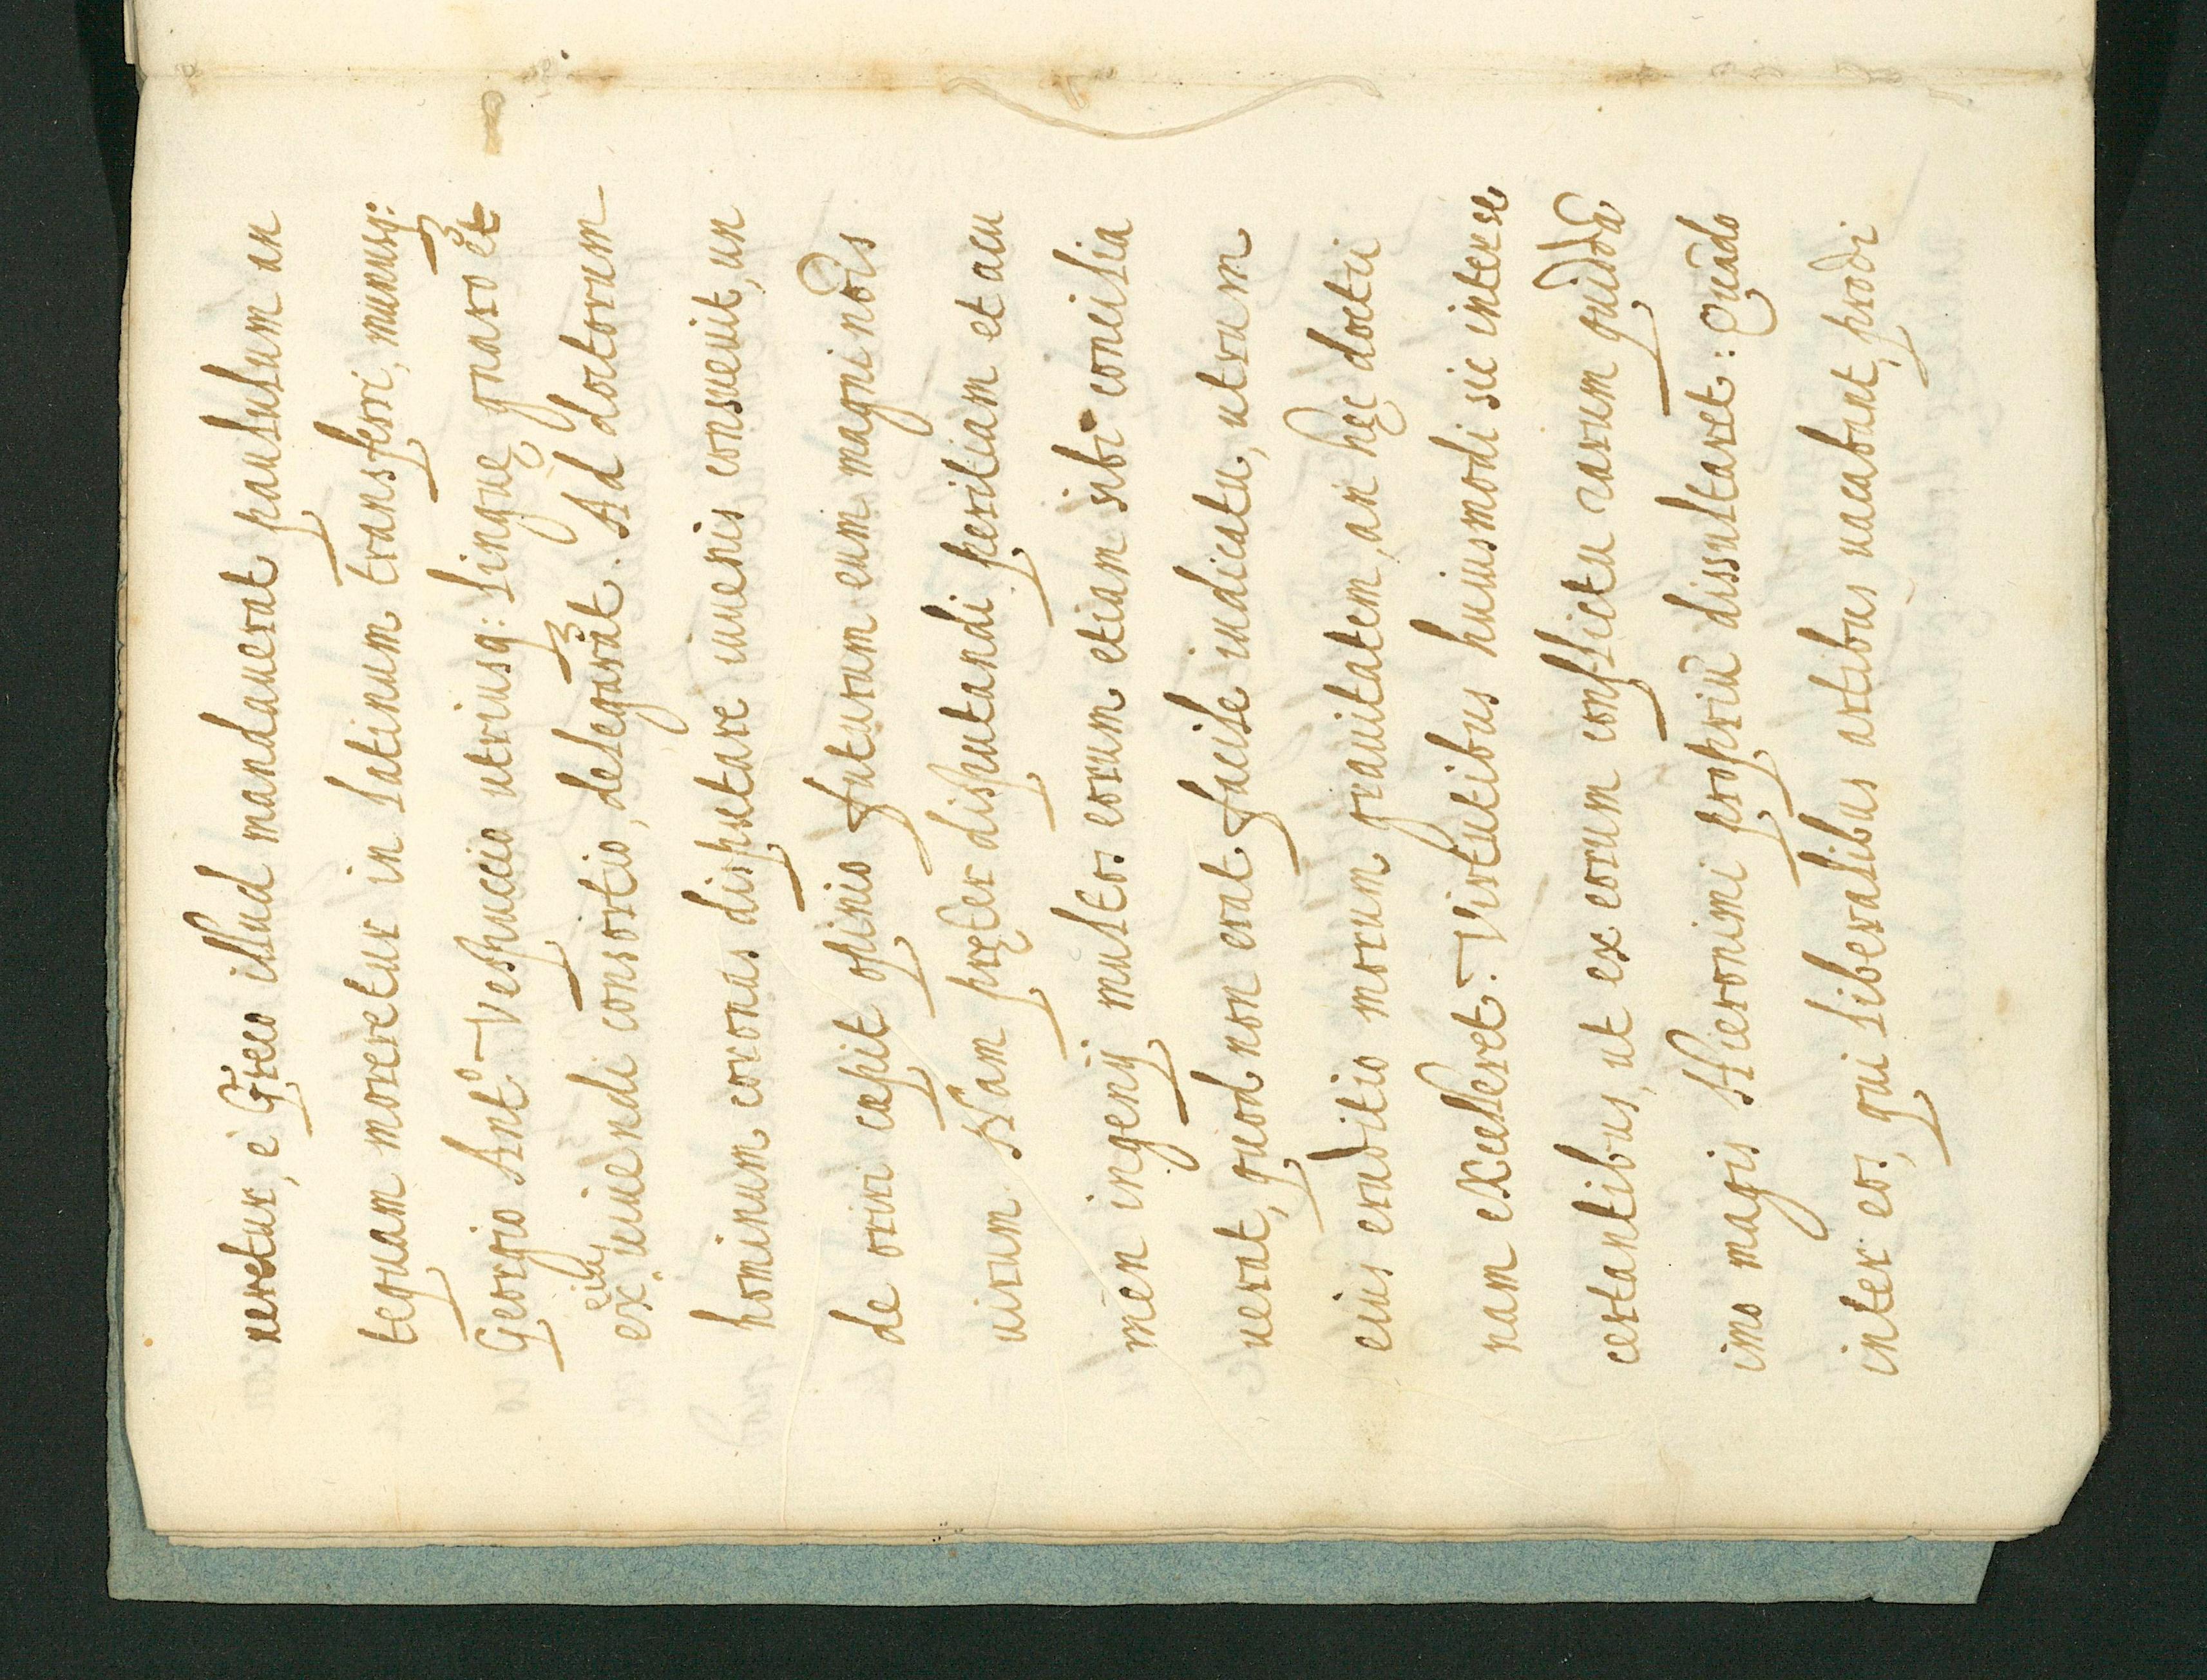 neretur, è Greco illud mandauerat paululum an
tequam moreretur in latinum transferri, munusq:
Georgio Ant.º Vespuccio utriusq: linguę gnaro et
ex eius uiuendi consortio, delegarāt. Ad doctorum
hominum coronas disputare iuuenis consueuit, un
de oriri cępit opinio futurum eum magni nōīs
uirum. Nam pręter disputandi peritiam et acu
men ingenij multos eorum etiam sibi concilia
uerat, quod non erat facile iudicatu, utrum
eius eruditio morum grauitatem, an hęc doctri
nam excelleret. Virtutibus huiusmodi sic interse
certantibus, ut ex eorum conflictu rarum quiddā
imo magis Hieronimi propriū dissultaret: Quādo
inter eos, qui liberalibus artibus uacabant, prodi